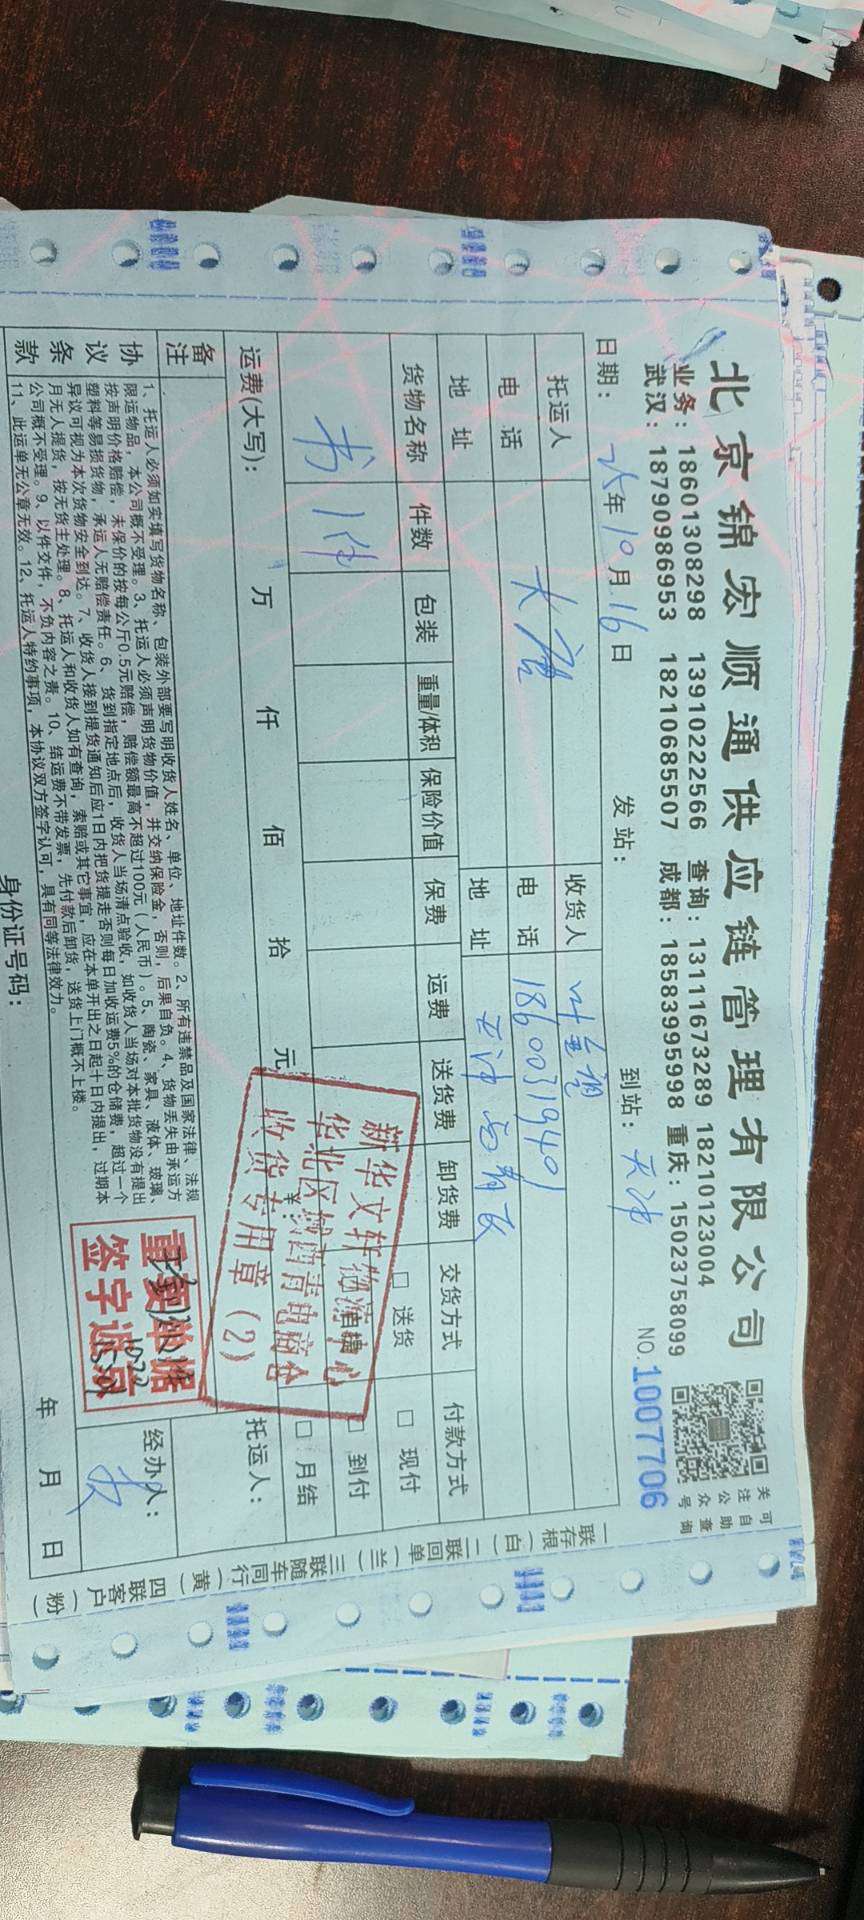 北京锦宏顺通供应链管理有限公司
业务：18601308298 13910222566 查询：13111673289 18210123004
武汉：18790986953 18210685507 成都：18583995998 重庆：15023758099
关注公众号
可自助查询
日期： 年10月16日 发站： 到站：天津 NO.1007706
托运人 收货人
电话 电话 1860031940
地址 地址 天津
货物名称 件数 包装 重量/体积 保险价值 保费 运费 送货费 卸货费 交货方式 付款方式
书 1件 □送货 □现付
□到付
□月结
运费(大写)： 万 仟 佰 拾 元 ¥： 托运人：
新华文轩物流中心
华北区域西青电商仓
收货专用章（2）
备注
协议条款
1、托运人必须如实填写货物名称、包装外部要写明收货人姓名、单位、地址件数。2、所有违禁品及国家法律、法规
限运物品，本公司概不受理。3、托运人必须声明货物价值，并交纳保险金，否则，后果自负。4、货物丢失由承运方
按声明价格赔偿，未保价的按每公斤0.5元赔偿，赔偿额最高不超过100元（人民币）。5、陶瓷、家具、液体、玻璃、
塑料等易损货物，承运人无赔偿责任。6、货到指定地点后，收货人当场清点验收，如收货人当场对本批货物没有提出
异议可视为本次货物安全到达。7、收货人接到提货通知后应1日内把货提走否则每日加收运费5%的仓储费，超过一个
月无人提货，按无货主处理。8、托运人和收货人如有查询，索赔或其它事宜，应在本单开出之日起十日内提出，过期本
公司概不受理。9、以件交件，不负内容之责。10、结运费不带发票，先付款后卸货，送货上门概不上楼。
11、此运单无公章无效。12、托运人特约事项，本协议双方签字认可，具有同等法律效力。
重要单据
签字诚点
经办人：
身份证号码： 年 月 日
一联存根（白）二联回单（兰）三联随车同行（黄）四联客户（粉）